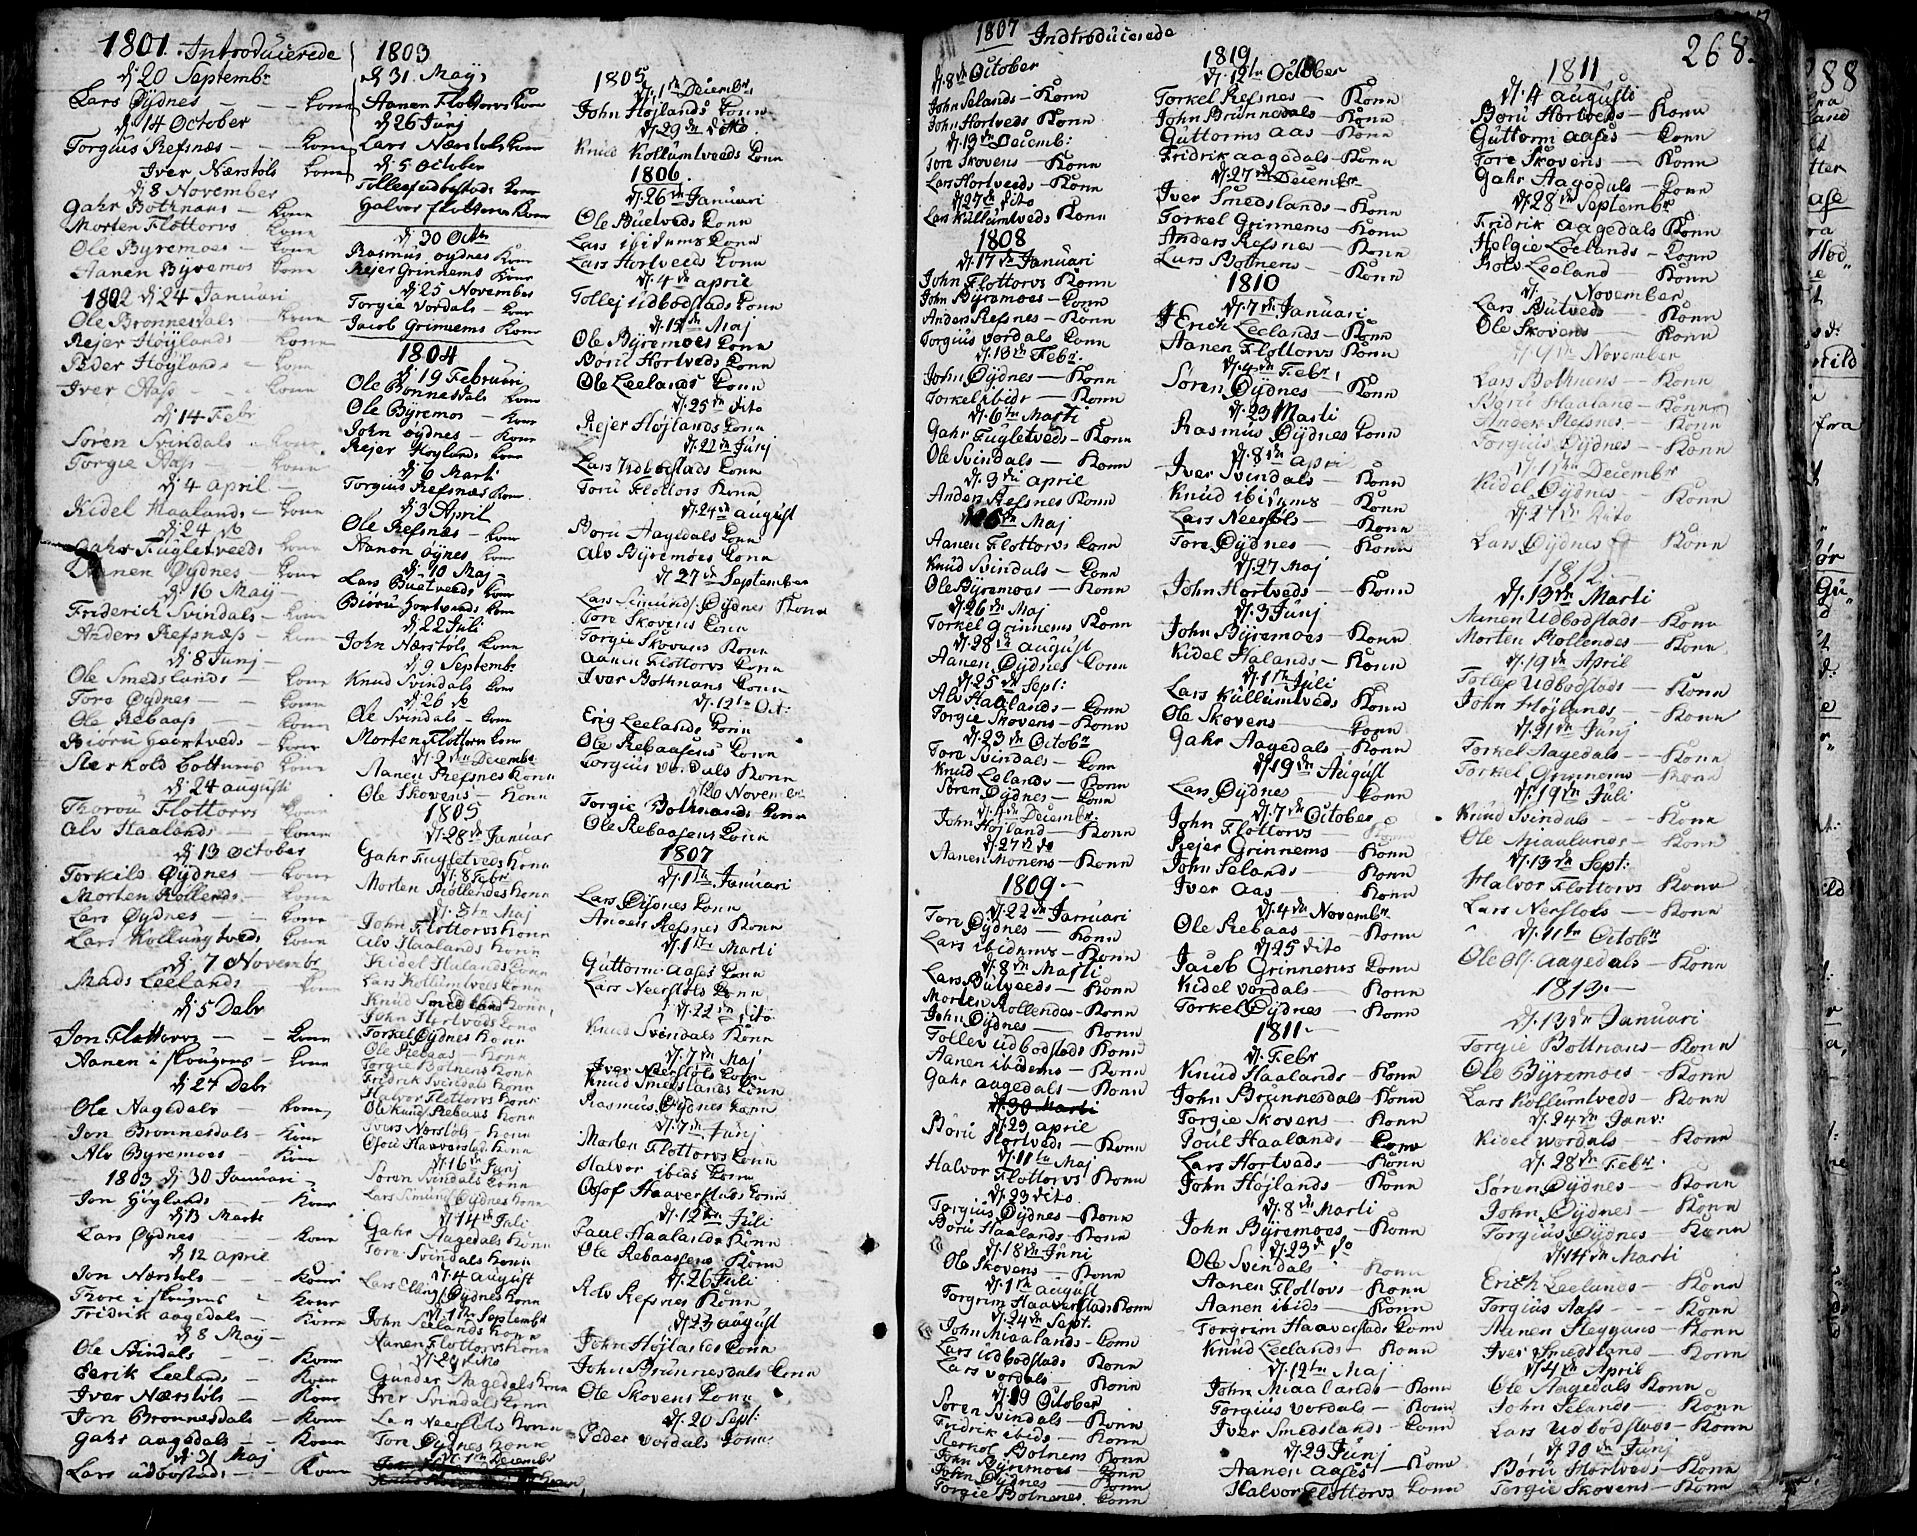 1801. Introducierede
dj 20 Septembr
Lars Øydnes - - - kone
dj 14 October
Torgius Refsnæs - - kone
Iver Nærstøls kone
dj 8 November
Gahr Bothnans - kone
Morten Flottorvs kone
Ole Byremoes - kone
Aanen Byremos kone
1802 dj 24 Januari
Ole Bronnesdals - kone
Rejer Høylands - kone
Peder Høylands - kone
Iver Aass - - kone
dj 14 Febr
Søren Svindals - kone
Torgie Aass - kone
dj 4 April -
Kidel Haalands - kone
dj 24 do
Gahr Fugletveeds kone
Aanen Øydnes - kone
dj 16 May -
Friderich Svindals - kone
Anders Refsnæss - kone
dj 8 Junj -
Ole Smedslands - kone
Tore Øydnes - kone
Ole Rebaass - - kone
Biøru Haortveds - kone
Sterkold Botnens kone
dj 24 augusti
Thorou Flottorvs kone
Alv Haalands - - kone
dj 13 October
Torkils Øydnes - kone
Morten Rollends - kone
Lars Øydnes - - kone
Lars Kollungtveds kone
dj 7 Novembr
Mads Leelands - kone
dj 5 Debr
Jon Flottorvs - - kone
Aanen i skougens - kone
dj 27 Debr
Ole Aagedals - kone
Jon Bronnesdals - kone
Alv Byremoes - kone
1803 dj 30 Januari
Jon Høglands - kone
dj 13 Marti
Lars Øydnes - - kone
dj 12 april
Jon Nærstøls - - kone
Thore i skougens - kone
Fridrik aagedals - kone
dj 8 May -
Ole Svindals - - kone
Eerik Leelands - kone
Iver Nærstøls - kone
Jon Bronnesdals - kone
Gahr aagedals - kone
dj 31 Maj
Lars udbodstads - - kone
1803
dj 31. Mayj
Aanen Flottorvs kone
dj 26 Junj
Lars Nærstøls kone
dj 5 October
Tollef udbostads kone
Halvor flottorvs kone
dj 30 Octbr
Rasmus øydnes kone
Rejer Grinnems kone
dj 25 November
Torgie Vordals - kone
Jacob Grimnems kone
1804
dj 19 Februari
Ole Bonnesdals kone
Ole Byremos - kone
John øydnes - kone
Rejer Høylands kone
dj 6 Marti
Torgius Refsnæs kone
dj 3 April
Ole Refsnæs - kone
Aanon øynes kone
dj 10 Maj
Lars Buetveeds kone
Biøru Hortveds kone
dj 22 Juli
John Nærstøls kone
dj 9 Septembr
Knud Svindals kone
dj 26 do
Ole Svindals - kone
Morten Flottorvs kone
dj 2den Decembr
Aanen Refsnes kone
Ole Skovens - konn
1805
dj 28de Januar
Gahr Fugletveds konn
dj. 8 Febr
Morten Møllendes konn
dj. 5te Maj
John Flottorvs konn
Alv Haalands konn
Kidel Hulands konn
Lars Kollumtveds konn
Knud Smedsland konn
John Hortveds konn
Torkel Øydnes konn
Ole Rebaas - konn
Torgie Botnens konn
Fredrik Svindals konn
Halvor Flottorvs konn
Ole Knud Rebaas konn
Ivers Nærstøls - konn
Osou Haaverstad konn
dj 16 Junj
Søren Svindals konn
Lars Simund Øydnes konn
dj 14de Juli
Gahr Aagedals konn
Tore Svindals konn
dj. 4 august
Lars Ellingsøn Øydnes konn
dj. 1te Septembr
John Selands konn
Aanen Flottorvs konn
dj 20 dito
Gunder Aagedals konn
Iver Svindals konn
Lars Neerstøls konn
Tore Øydnes konn
dj. 1te Decembr
1805
dj. 1te Decembr
John Højlands konn
dj. 29de dito
Knud Kollumtveeds konn
1806.
dj. 26de Januari
Ole Buetveds konn
Lars ibidums konn
Lars Hortveds konn
dj. 4de april
Tollej udbodstads konn
dj. 15de Maj
Ole Byremoes konn
Boru Hortveds konn
Ole Leelands konn
dj. 25de dito
Rejer Højlands konn
dj. 22de Junj
Lars Udbostads konn
Toru Flottors konn
dj. 24de august
Boru Aagedals konn
Alv Byremoes konn
dj 27de September
Lars Simunds Øydnes konn
Tore Skovens konn
Torgie Skovens konn
Aanen Flottorvs konn
Ivar Bothnans konn
dj. 12te Oct:
Erig Leelands konn
Ole Rebaasens konn
Torgius Vordals konn
dj 26 November
Torgie Bothnands konn
Ole Rebaasens konn
1807
dj. 1te Januari
Lars Øydnes konn
Anders Refsnes konn
dj. 1te Marti
Guttorm Aases konn
Lars Neerstøls konn
dj. 22de dito
Knud Svindals konn
dj. 7de Maj
Iver Neerstøls konn
Knud Smedslands konn
Rasmus Øydnes konn
dj. 7de Junj
Morten Flottorvs konn
Halvor ibids konn
Osof Haaverstads konn
dj. 12te Juli
Paul Haalands konn
Ole Rebaasens konn
dj. 26 Juli
Adv Refsnes konn
dj. 23 august
John Højlands konn
John Brunnesdals konn
Ole Skovens konn
dj. 20 Sept:
Peder Vordals konn
1807 Indtroducierede
dj. 8de October
John Selands - konn
John Hortveds konn
dj. 13de Decemb:
Tore Skovens - konn
Lars Hortveeds - konn
dj. 27de dito
Lars Kullumtveds konn
1808
dj. 17de Januari
John Flottorvs konn
John Byremoes - konn
Anders Refsnes - konn
Torgius Vordals konn
dj. 13de Febr.
John Øydnes - konn
Torkel ibidr - konn
dj. 6te Marti
Gahr Fugletveds - konn
Ole Svindals - konn
dj. 3de april
Anders Refsnes konn
Maj
Aanen Flottorvs konn
Knud Svindals - konn
Ole Byremoes - konn
dj. 26de Maj
Torkel Grinnems konn
dj. 28de august
Aanen Øydnes konn
dj. 25de Sept:
Alv Haalands - konn
Torgie Skovens - konn
dj. 23de Octobr
Tore Svindals - konn
Knud Lelands - konn
Søren Øydnes - konn
dj. 4de Decembr.
John Højland - konn
dj. 27de do
Aanen Monens - konn
1809. -
dj. 22de Januari
Tore Øydnes - konn
Lars ibidems - konn
dj. 8de Marti
Lars Butveeds - konn
Morten Rollendes - konn
John Øydnes - konn
Tollev udbodstads konn
Aanen ibidems - konn
Gahr aagedals - konn
dj. 30 Marti
dj. 23 april
Boru Hortveds - konn
dj. 11te Maj
Halvor Flottorvs konn
dj. 23 dito
Torgius Øydnes - konn
Boru Haalands - konn
dj. 18de Juni
Ole Skovens - konn
dj. 1te august
Torgrim Haaverstads konn
dj. 24de Sept.
John Miaalands - konn
Lars udbodstads konn
Lars Vordals - konn
dj. 19 October
Søren Svindals - konn
Fredrik ibids - konn
Sterkol Botnens konn
John Byremoes - konn
John Øydnes - konn
Torgie Botnenes. konn
1819
dj. 12te October
Torkel Refsnes - konn
John Brunnesdals - konn
Guttorms Aas - konn
Fridrik Aagedals - konn
dj. 27de Decembr
Iver Smedslands - konn
Torkel Grinnems - konn
Anders Refsnes - konn
Lars Botnens - konn
1810
dj. 7de Januari
Erich Leelands - konn
Aanen Flottorvs konn
dj. 4de Febr.
Søren Øydnes - konn
dj. 23 Marti
Rasmus Øydnes konn
dj. 8de April
Iver Svindals - konn
Knud ibidems - konn
Lars Neerstøls - konn
Tore Øydnes - konn
dj. 27 Maj
John Hortveds - konn
dj. 3 Junj
John Byremoes - konn
Kidel Halands - konn
dj. 1te Juli
Lars Kullumtveds konn
Ole Skovens - konn
Gahr Aagedals - konn
dj 19de August
Lars Øydnes - konn
dj. 7de October
John Flottorvs - konn
Rejer Grinnems - konn
John Selands - konn
Iver Aas - konn
dj. 4de Novembr
Ole Rebaas - konn
dj 25 dito
Jacob Grinnems konn
Kidel Vordals - konn
Torkel Øydnes - konn
1811. -
dj. Febr
Knud Haalands - konn
John Brunnesdals - konn
Torgie Skovens - konn
Poul Haalands - konn
Lars Hortveds - konn
John Højlands - konn
dj. 8de Marti
John Byremoes - konn
dj. 23de do
Ole Svindals - konn
Aanen Flottovs - konn
Aanen ibids - konn
Torgrim Haaverstads konn
Knud Leelands - konn
dj. 12te Maj
John Miaalands - konn
Torgius Vordals - konn
Iver Smedslands - konn
dj. 23 Junj
Aanen Aases - konn
Halvor Flottorvs konn
268.
1811
dj. 4 augusti
Boru Hortveds - konn
Guttorm Aases - konn
Tore Skovens - konn
Gahr Aagedals - konn
dj. 28de Septembr
Fridrik Aagedals konn
Helgie Leelands - konn
Rolv Leeland - konn
dj. November
Lars Butveds - konn
Ole Skovens konn
dj. 9de November
Lars Bothnens - konn
Boru Haaland - konn
Anders Refsnes - konn
Torgius Øydnes - konn
dj. 1te Decembr
Kidel Øydnes - konn
dj. 27de dito
Lars Øydnes - konn
1812 -
dj. 13de Marti
Aanen Udbodstads - konn
Morten Mollendes - konn
dj. 19de April
Tollef Udbodstads - konn
John Højlands - konn
dj. 21de Junj
Torkel Aagedals - konn
Torkel Grinnems - konn
dj. 19de Juli
Knud Svindals - konn
Ole Miaalands - konn
dj. 13de Sept:
Halvor Flottorvs konn
Lars Nerstøls - konn
dj. 11te Octobr
Ole Ols. Aagedals - konn
1813. -
dj. 13de Januari
Torgie Bottnans - konn
Ole Byremoes - konn
Lars Kollumtveds - konn
dj. 24de Janv:
Kidel Wordals - konn
dj. 28de Febr.
Søren Øydnes - konn
John Øydnes - konn
Torgius Øydnes - konn
dj. 14de Marti
Erich Leelands - konn
Torgius Aass - konn
Aanen Steggans - konn
Iver Smedsland - konn
dj. 4de April
Ole Aagedals konn
John Selands - konn
Lars Udbodstads - konn
dj. 20de Junj
Boru Hortveds - konn
Torgie Skovens - konn
88